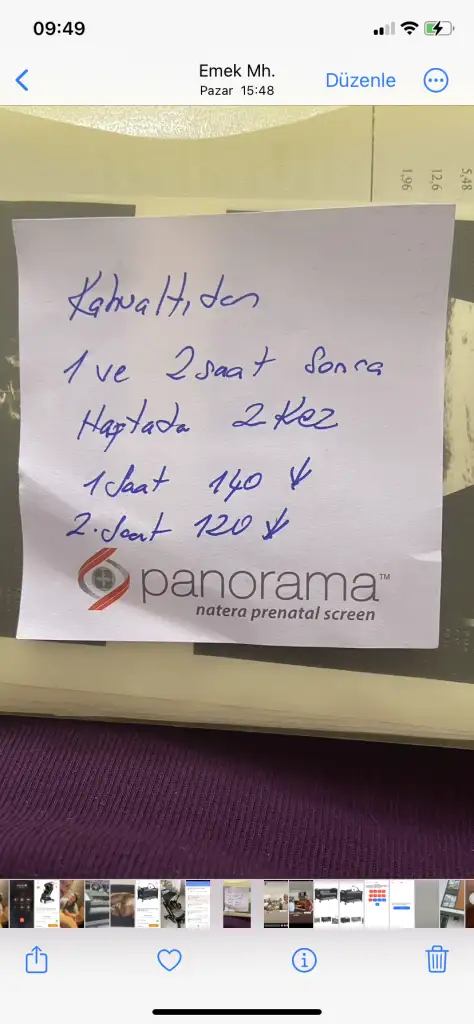 09:49
Emek Mh.
Pazar 15:48
Düzenle
5,48
12,6
1,96
Kahvaltıdan
1 ve 2 saat Sonra
Haftada 2 Kez
1 Saat 140 ↓
2. Saat 120 ↓
panorama™
natera prenatal screen